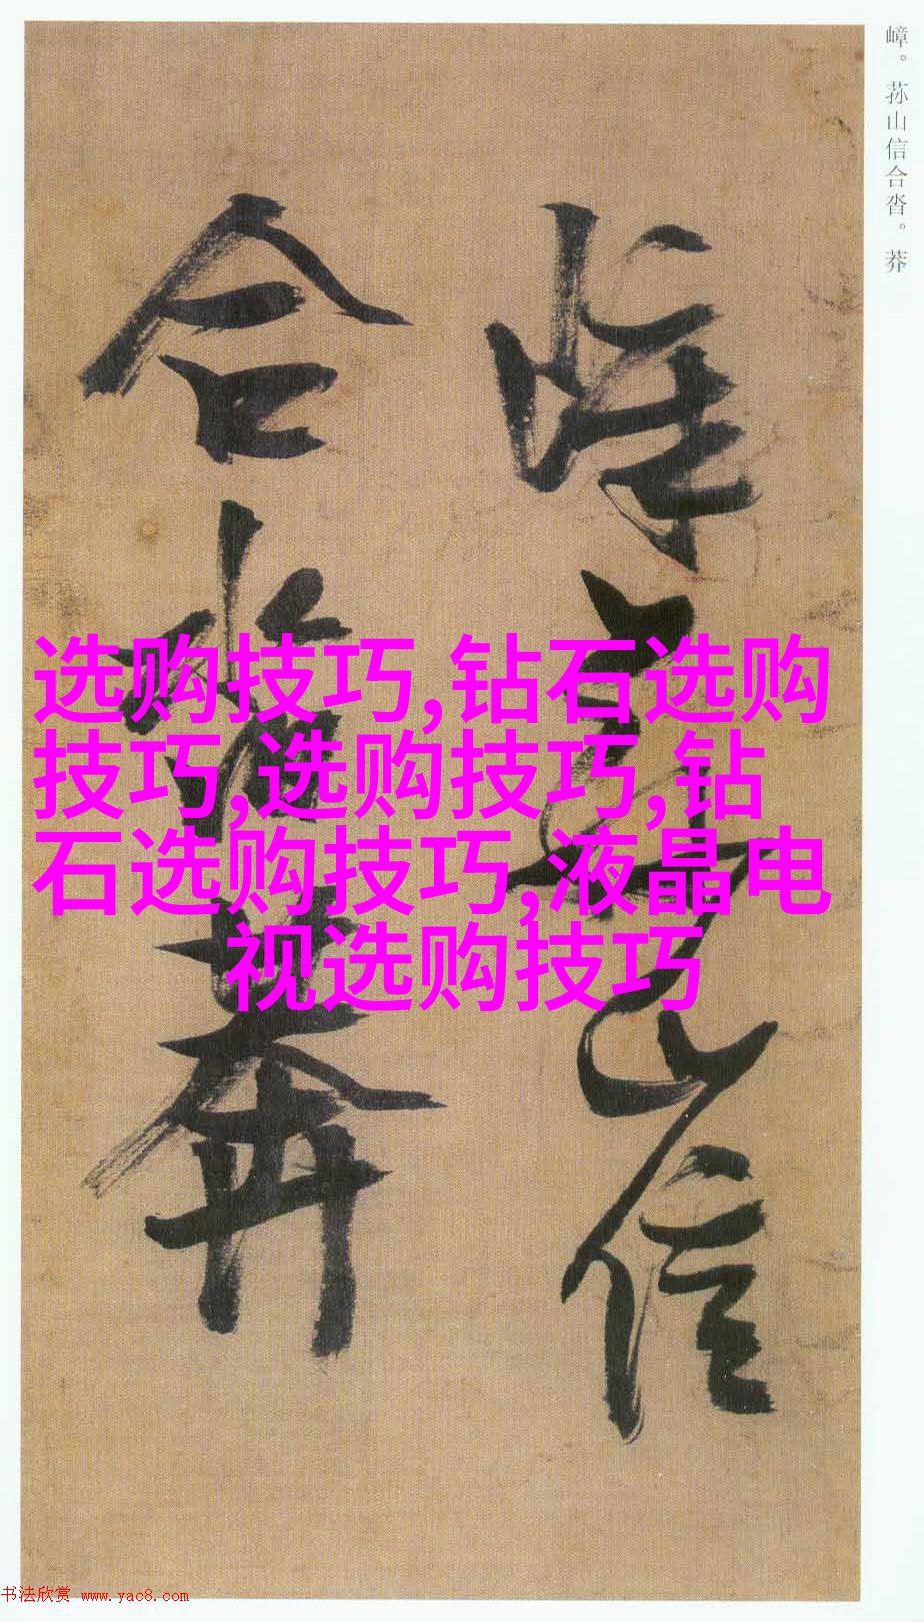 嶂。荪山信合沓。莽
嶂荪山信
合沓莽
选购技巧,钻石选购
技巧,选购技巧,钻
石选购技巧,液晶电
视选购技巧
书法欣赏 www.yac8.com